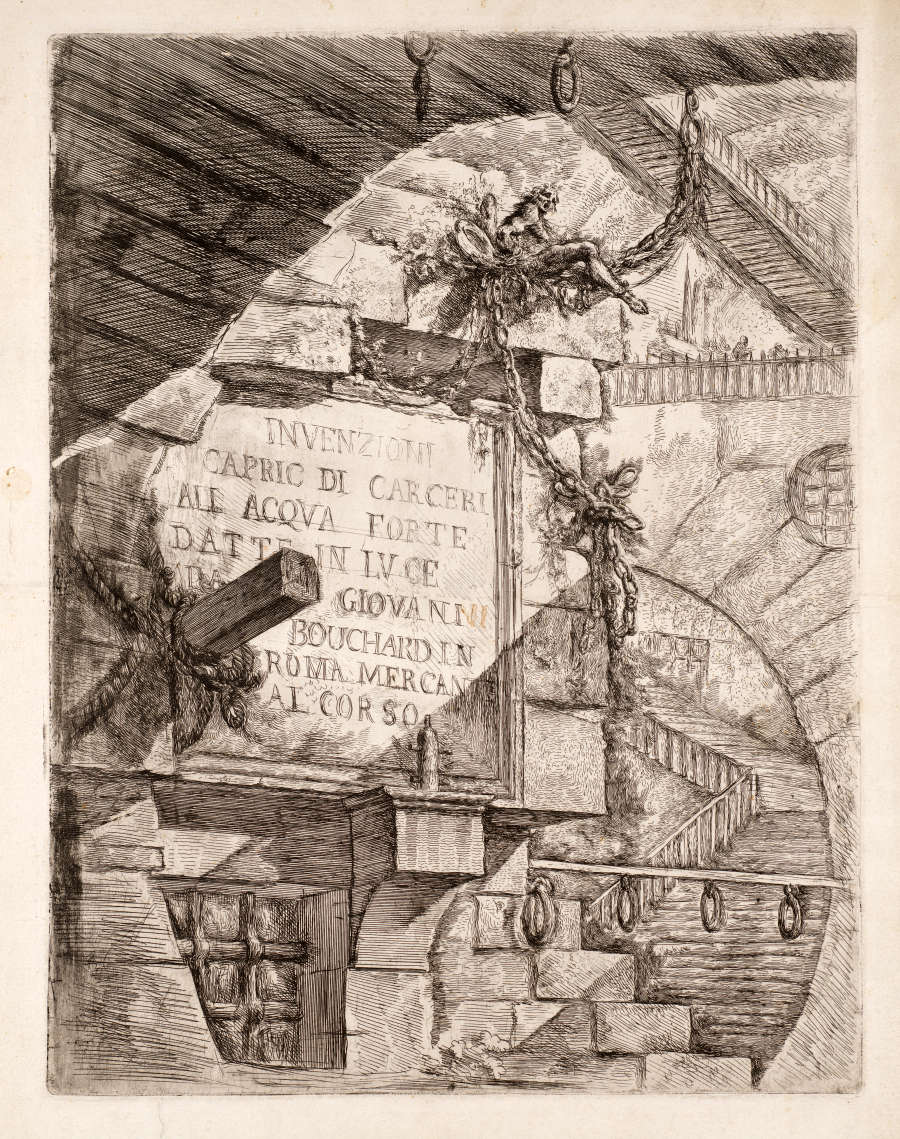 INVENZIONI
CAPRIC DI CARCERI
ALE ACQVA FORTE
DATTE IN LVCE
DA GIOVANNI
BOUCHARD IN
ROMA MERCAN
AL CORSO